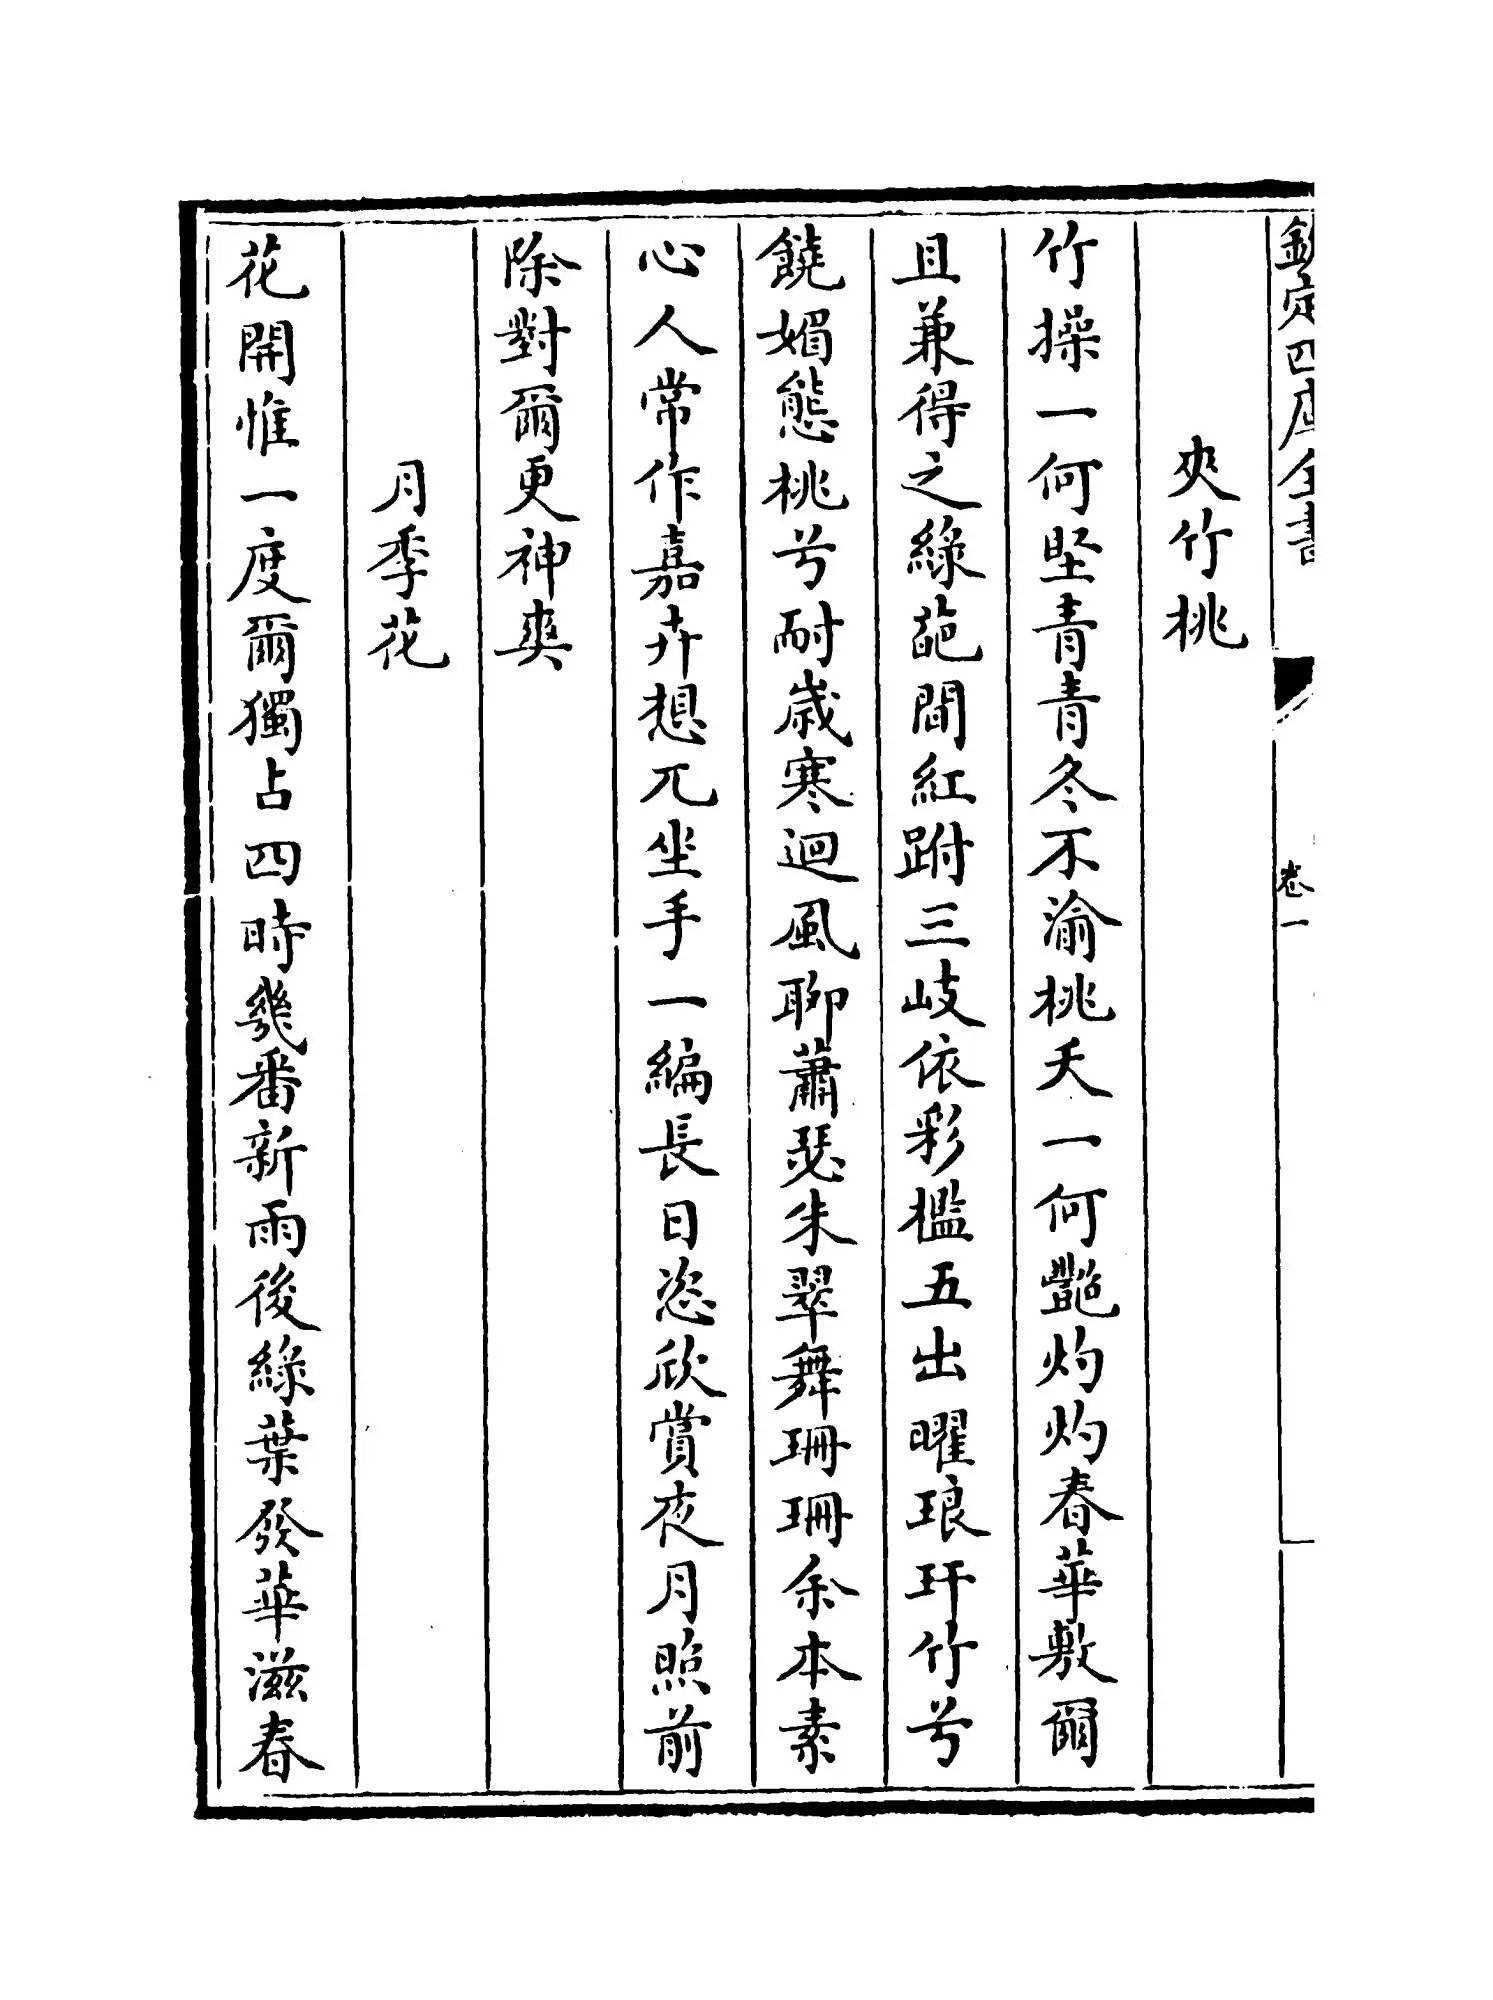 欽定四庫全書
卷一
夾竹桃
竹操一何堅青青冬不渝桃夭一何艷灼灼春華敷爾
且兼得之綠葩間紅跗三歧依彩檻五出曜琅玕竹兮
饒媚態桃兮耐歲寒迴風聊蕭瑟朱翠舞珊珊余本素
心人常作嘉卉想兀坐手一編長日恣欣賞夜月照前
除對爾更神爽
月季花
花開惟一度爾獨占四時幾番新雨後綠葉發華滋春